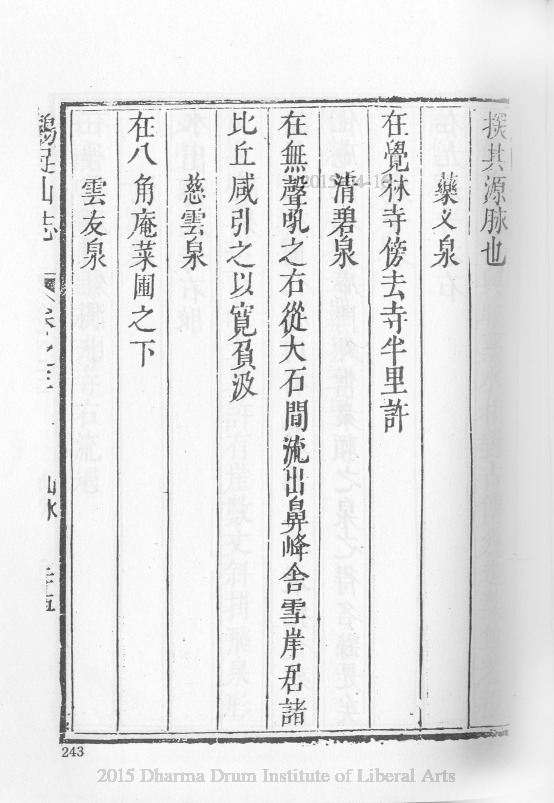 撰其源脉也
藥义泉
在覺林寺傍去寺半里許
清碧泉
在無聲吼之右從大石間流出鼻峰舍雪岸居諸
比丘咸引之以寬負汲
慈雲泉
在八角庵菜圃之下
雲友泉
雞足山志 卷之三 山水 二十五
243
2015-04-16
2015 Dharma Drum Institute of Liberal Arts